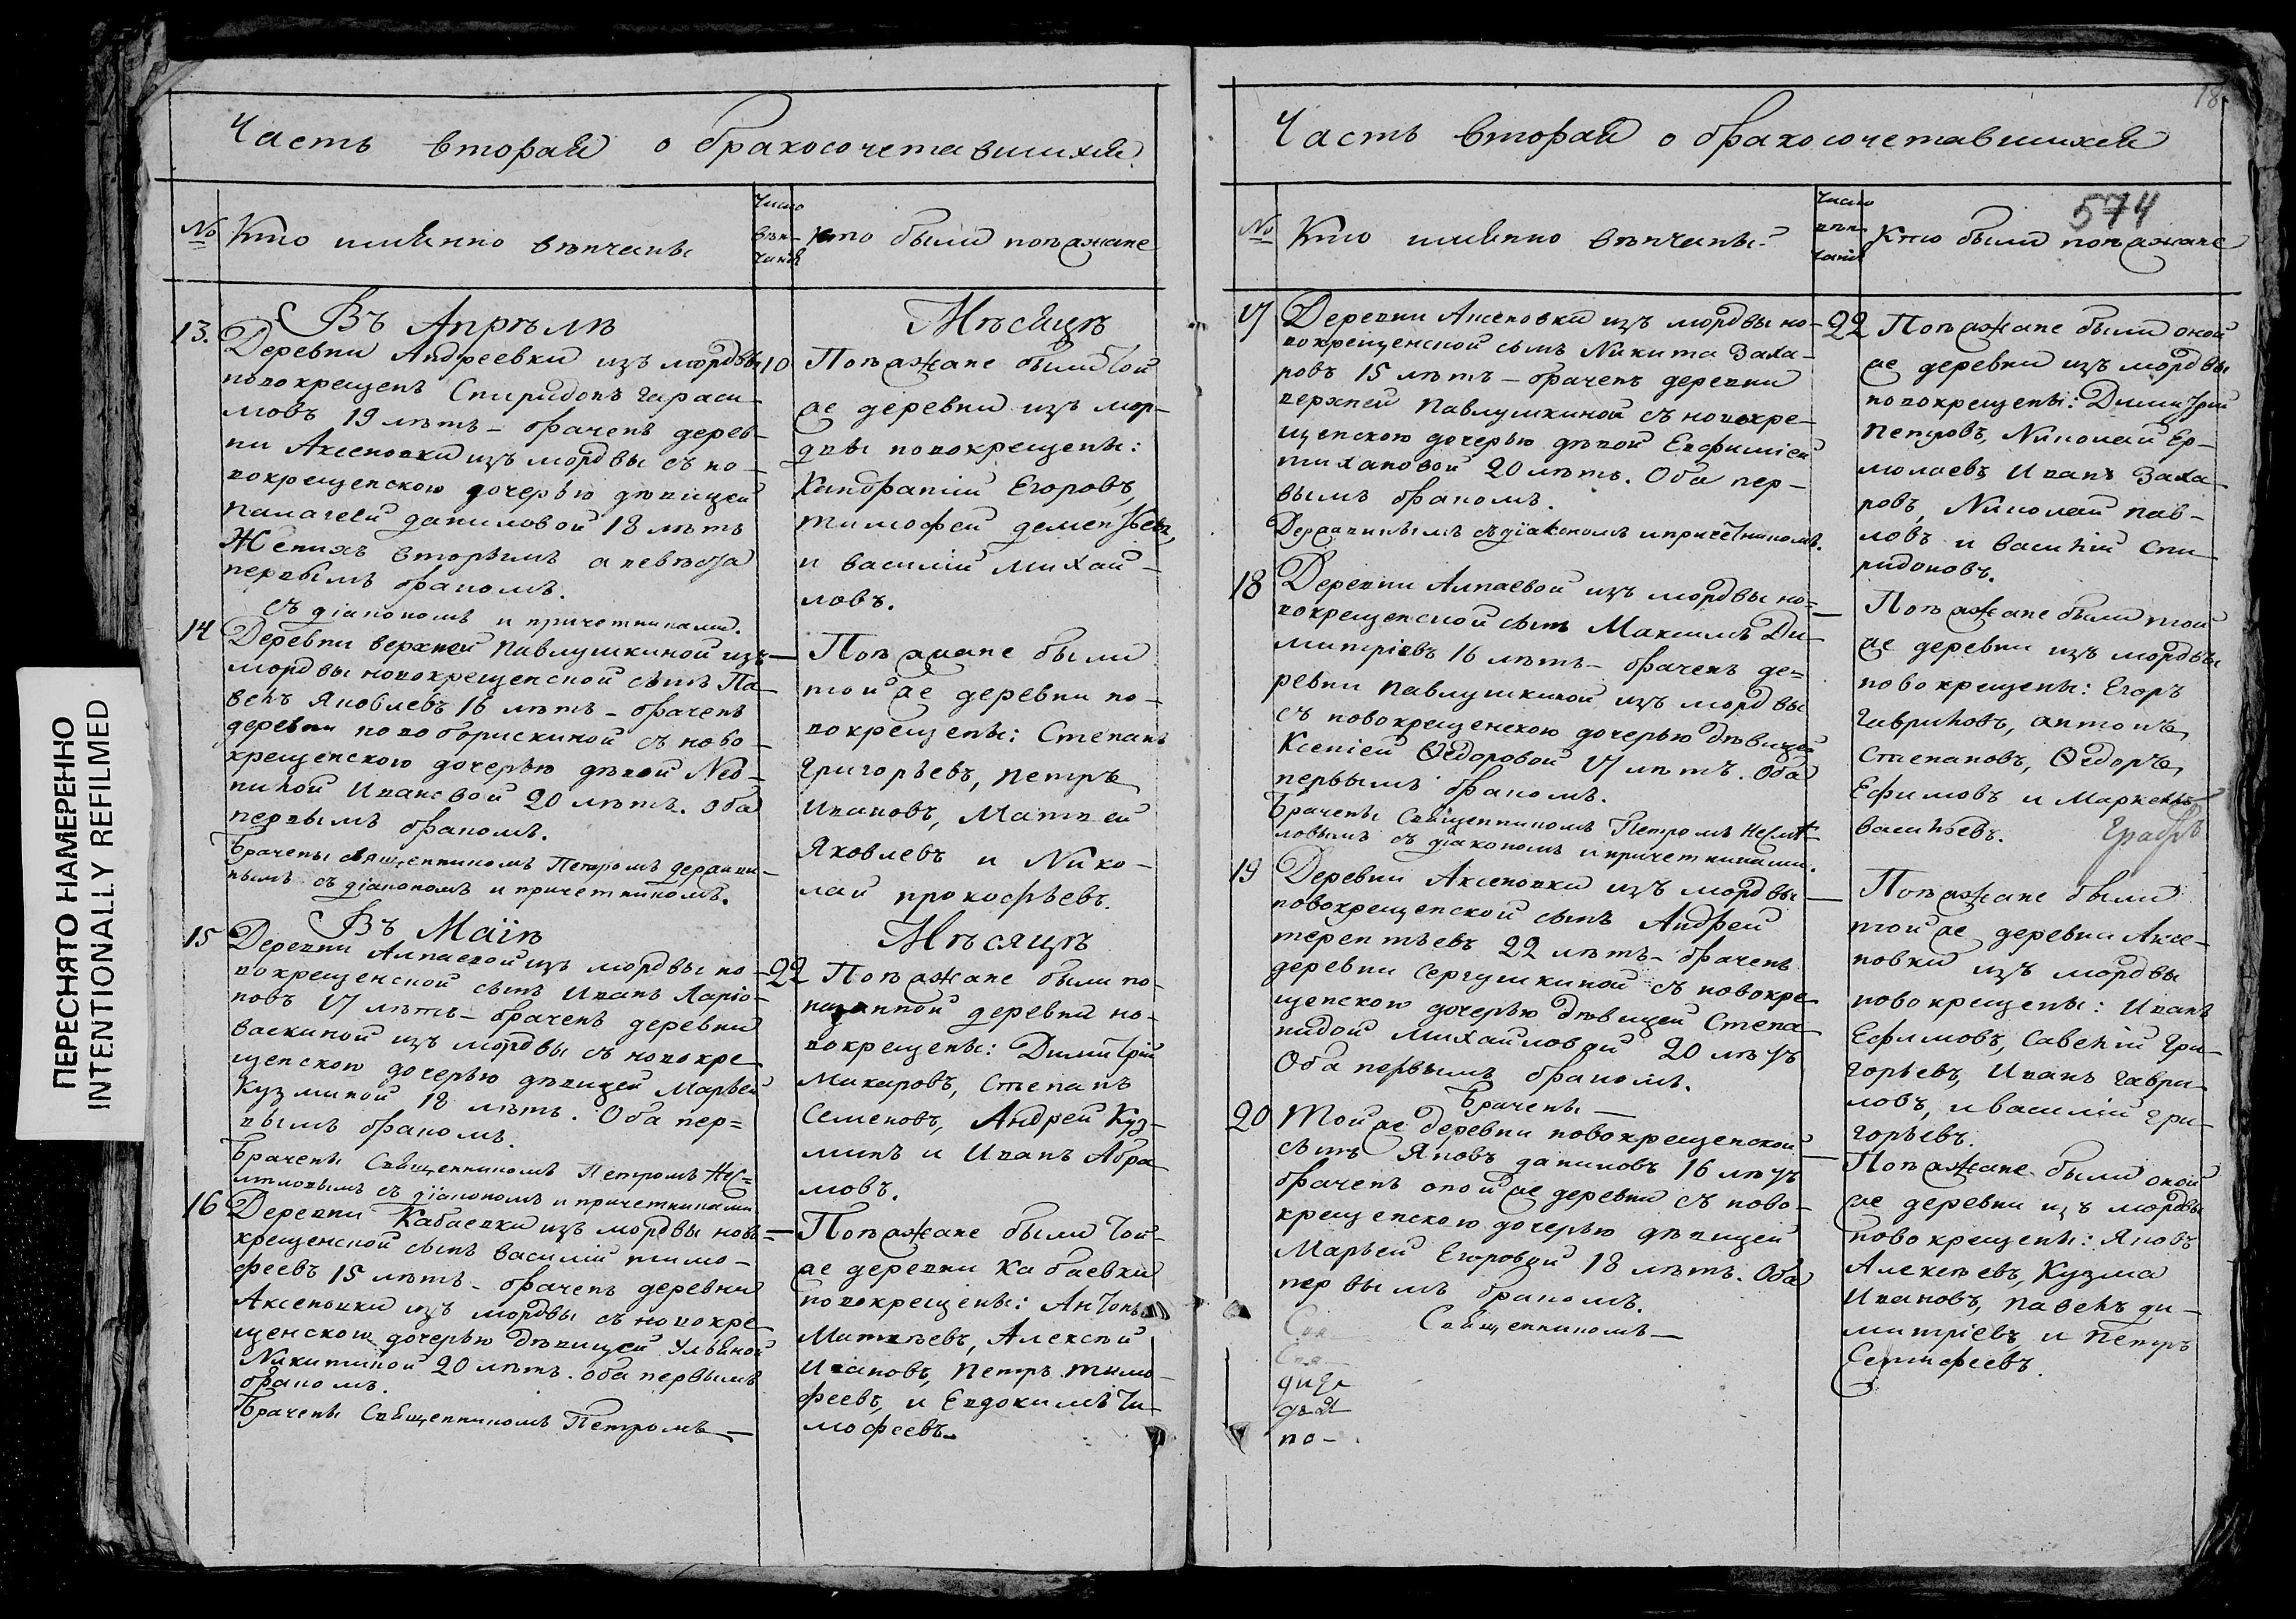 ПЕРЕСНЯТО НАМЕРЕННО
INTENTIONALLY REFILMED
Часть вторая о бракосочетавшихся
№ Кто именно венчаны
Число вѣнчанія
Кто были поѣзжане
Въ Апрѣлѣ
Мѣсяцѣ
13. Деревни Андреевки изъ мордвы
новокрещенъ Спиридонъ Гараси-
мовъ 19 лѣтъ – браченъ дерев-
ни Аксеновки изъ мордвы съ но-
вокрещенскою дочерью дѣвицей
Палагеей Даниловой 18 лѣтъ
Женихъ вторымъ а невѣста
первымъ бракомъ.
съ діакономъ и причетниками.
10 Поѣзжане были той
же деревни изъ мор-
двы новокрещены:
Кандратій Егоровъ,
Тимофей Дементьевъ,
и Василій Михай-
ловъ.
14 Деревни верхней Павлушкиной изъ
мордвы новокрещенской сынъ Па-
велъ Яковлевъ 16 лѣтъ – браченъ
деревни новоборискиной съ ново-
крещенскою дочерью дѣвкой Нео-
нилой Ивановой 20 лѣтъ. Оба
первымъ бракомъ.
Брачены священникомъ Петромъ Держави-
нымъ съ діакономъ и причетникомъ.
— Поѣзжане были
той же деревни но-
вокрещены: Степанъ
Григорьевъ, Петръ
Ивановъ, Матвей
Яковлевъ и Нико-
лай Прокофьевъ.
Въ Маіѣ
Мѣсяцѣ
15 Деревни Алпаевой изъ мордвы но-
вокрещенской сынъ Иванъ Ларіо-
новъ 17 лѣтъ – браченъ деревни
Васкиной изъ мордвы съ новокре-
щенскою дочерью дѣвицей Марьей
Кузминой 18 лѣтъ. Оба пер=
вымъ бракомъ.
Брачены Священникомъ Петромъ Нес=
мѣловымъ съ діакономъ и причетниками
22 Поѣзжане были по-
казанной деревни но-
вокрещены: Димитрій
Макаровъ, Степанъ
Семеновъ, Андрей Куз-
минъ и Иванъ Абра-
мовъ.
16 Деревни Кабаевки изъ мордвы ново=
крещенской сынъ Василій Тимо-
феевъ 15 лѣтъ – браченъ деревни
Аксеновки изъ мордвы съ новокре-
щенскою дочерью дѣвицей Ульяной
Никитиной 20 лѣтъ. оба первымъ
бракомъ.
Брачены Священникомъ Петромъ —
— Поѣзжане были той-
же деревни Кабаевки
новокрещены: Антонъ
Матвѣевъ, Алексѣй
Ивановъ, Петръ Тимо-
феевъ, и Евдокимъ Ти-
мофеевъ.
18
Часть вторая о бракосочетавшихся
574
№ Кто именно венчаны?
Число вѣнчанія
Кто были поѣзжане
17 Деревни Аксеновки изъ мордвы но-
вокрещенской сынъ Никита Заха-
ровъ 15 лѣтъ – браченъ деревни
верхней Павлушкиной съ новокре-
щенскою дочерью дѣвкой Евфиміей
Тихановой 20 лѣтъ. Оба пер-
вымъ бракомъ.
Державинымъ съ діакономъ и причетникомъ.
22 Поѣзжане были оной
же деревни изъ мордвы
новокрещены: Димитрій
Петровъ, Николай Ер-
молаевъ, Иванъ Заха-
ровъ, Николай Пав-
ловъ и Василій Спи-
ридоновъ.
18 Деревни Алпаевой изъ мордвы но=
вокрещенской сынъ Максимъ Ди-
митріевъ 16 лѣтъ – браченъ де=
ревни Павлушкиной изъ мордвы
съ новокрещенскою дочерью дѣвицей
Ксеніей Ѳедоровой 17 лѣтъ. Оба
первымъ бракомъ.
Брачены Священникомъ Петромъ Несмѣ-
ловымъ съ діакономъ и причетниками.
— Поѣзжане были той
же деревни изъ мордвы
новокрещены: Егоръ
Гавриловъ, Антонъ
Степановъ, Ѳедоръ
Ефимовъ и Маркелъ
Васильевъ.
19 Деревни Аксеновки изъ мордвы
новокрещенской сынъ Андрей
Терентьевъ 22 лѣтъ – браченъ
деревни Сергушкиной съ новокре-
щенскою дочерью дѣвицей Степа-
нидой Михайловой 20 лѣтъ
Оба первымъ бракомъ.
Брачены —
— Поѣзжане были
той же деревни Аксе-
новки изъ мордвы
новокрещены: Иванъ
Ефимовъ, Савелій Гри-
горьевъ, Иванъ Гаври-
ловъ, и Василій Гри-
горьевъ.
20 Той же деревни новокрещенской
сынъ Яковъ Даниловъ 16 лѣтъ
браченъ оной же деревни съ ново-
крещенскою дочерью дѣвицей
Марьей Егоровой 18 лѣтъ. Оба
первымъ бракомъ.
Священникомъ —
— Поѣзжане были оной
же деревни изъ мордвы
новокрещены: Яковъ
Алексѣевъ, Кузма
Ивановъ, Павелъ Ди-
митріевъ, и Петръ
по-